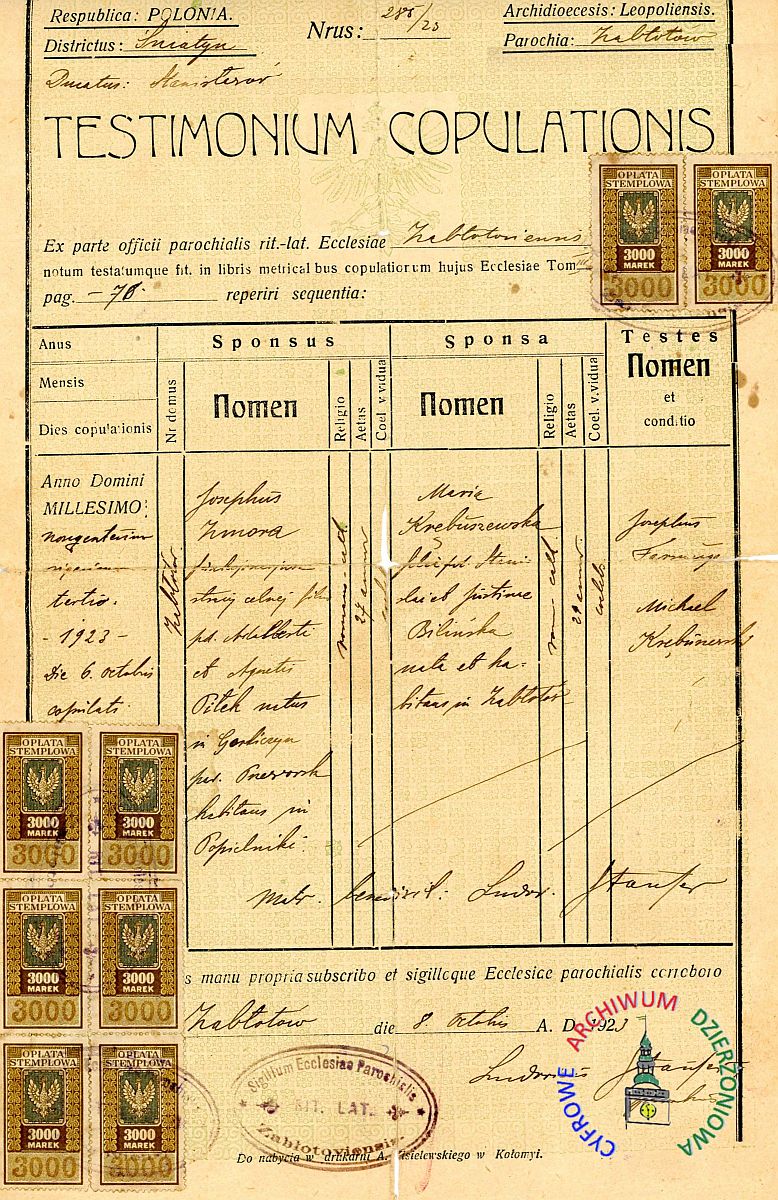 Respublica: POLONIA.
Nrus: 286/23
Archidioecesis: Leopoliensis.
Districtus: Śniatyn
Parochia: Zabłotów
Ducatus: Stanisławów
TESTIMONIUM COPULATIONIS
OPŁATA STEMPLOWA 3000 MAREK 3000
OPŁATA STEMPLOWA 3000 MAREK 3000
Ex parte officii parochialis rit.-lat. Ecclesiae Zabłotoviensis
notum testatumque fit. in libris metrical bus copulatiorum hujus Ecclesiae Tom
pag. -78- reperiri sequentia:
Anus
Mensis
Dies copulationis
Nr domus
Sponsus
Nomen
Religio
Aetas
Coel v. vidua
Sponsa
Nomen
Religio
Aetas
Coel. v. vidua
Testes
Nomen
et
conditio
Anno Domini
MILLESIMO
nongentesimo
vigesimo
tertio.
- 1923 -
Die 6. octobris
copulati.
Zabłotów
Josephus
Zmora
straży celnej filius
pd. Adalberti
et Agnetis
Piłek natus
in Gorliczyn
pow. Przeworsk
habitans in
Popielniki.
romano-cath.
27 annor
Maria
Krębuszewska
filia pd. Stani-
slai et Justinae
Bilińska
nata et ha-
bitans in Zabłotów
rom-cath.
29 annor
caelebs
Josephus
Michael
Krębuszewski
Matr. Ludov. Stauffer
OPŁATA STEMPLOWA 3000 MAREK 3000
OPŁATA STEMPLOWA 3000 MAREK 3000
OPŁATA STEMPLOWA 3000 MAREK 3000
OPŁATA STEMPLOWA 3000 MAREK 3000
OPŁATA STEMPLOWA 3000 MAREK 3000
OPŁATA STEMPLOWA 3000 MAREK 3000
s manu propria subscribo et sigilloque Ecclesiae parochialis corroboro
Zabłotów die 8. octobris A. D. 1923
Ludovicus Stauffer
Sigillum Ecclesiae Parochialis
RIT. LAT.
Zabłotoviensis
CYFROWE ARCHIWUM DZIERŻONIOWA
Do nabycia w drukarni A. Kisielewskiego w Kołomyi.